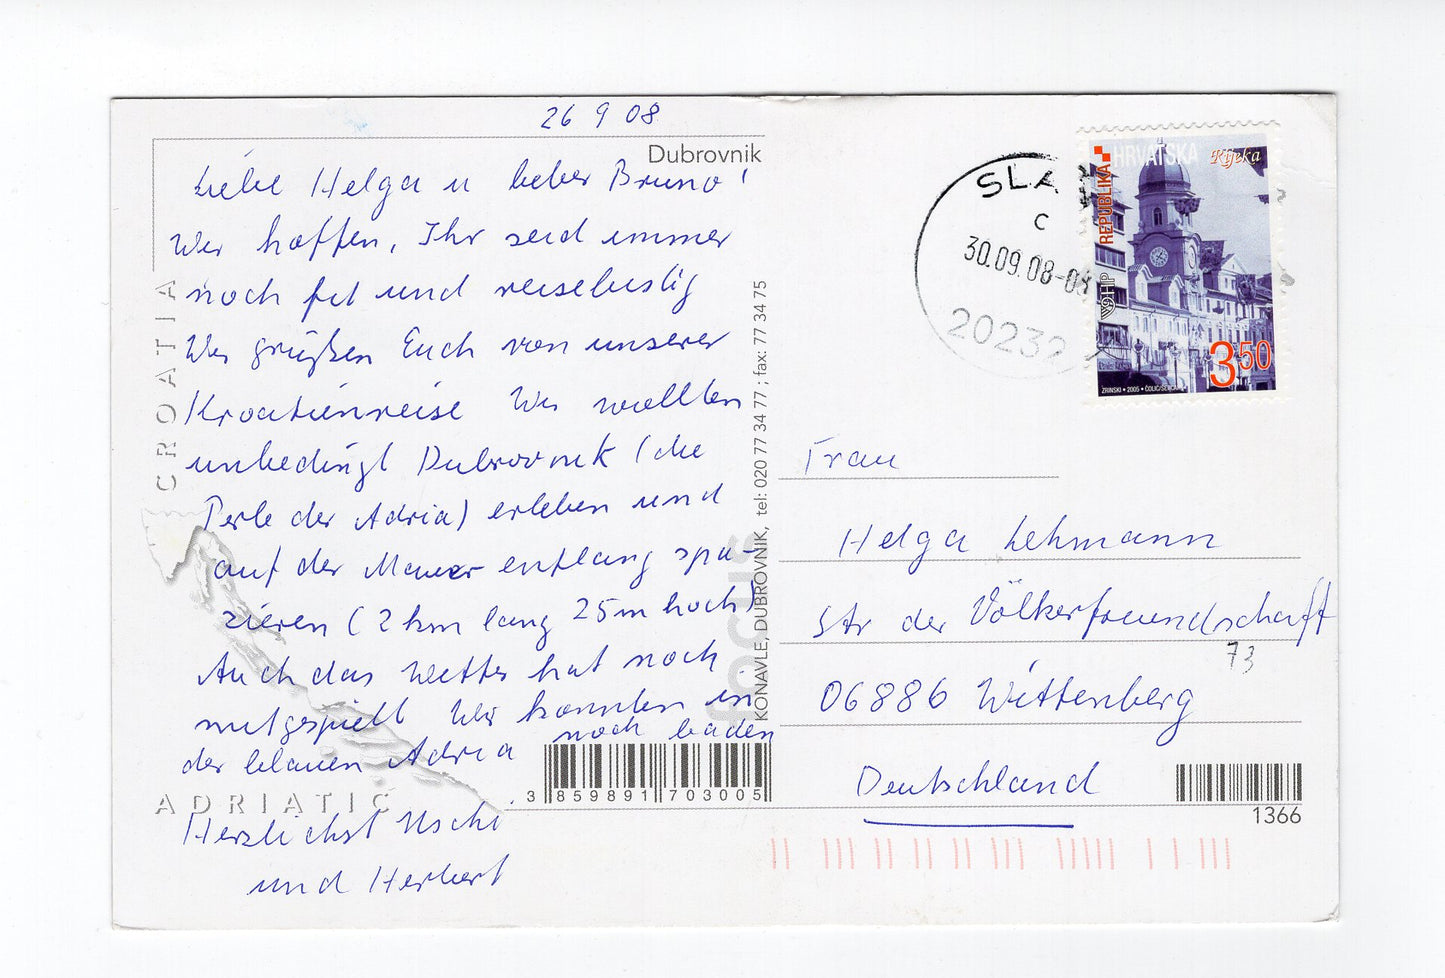 26 9 08
Dubrovnik
Liebe Helga u lieber Bruno!
Wir hoffen, Ihr seid immer
noch fit und reiselustig
Wir grüßen Euch von unserer
Kroatienreise Wir wollten
unbedingt Dubrovnik (die
Perle der Adria) erleben und
auf der Mauer entlang spa-
zieren (2 km lang 25m hoch)
Auch das Wetter hat noch
mitgespielt Wir konnten in
der blauen Adria noch baden
Herzlichst Uschi
und Herbert
CROATIA
ADRIATIC
focus
KONAVLE, DUBROVNIK, tel: 020 77 34 77 ; fax: 77 34 75
3 859891 703005
SLA
c
30.09.08-08
20232
REPUBLIKA HRVATSKA
Rijeka
HP
3 50
ZRINSKI • 2005 •
Frau
Helga Lehmann
Str der Völkerfreundschaft
73
06886 Wittenberg
Deutschland
1366